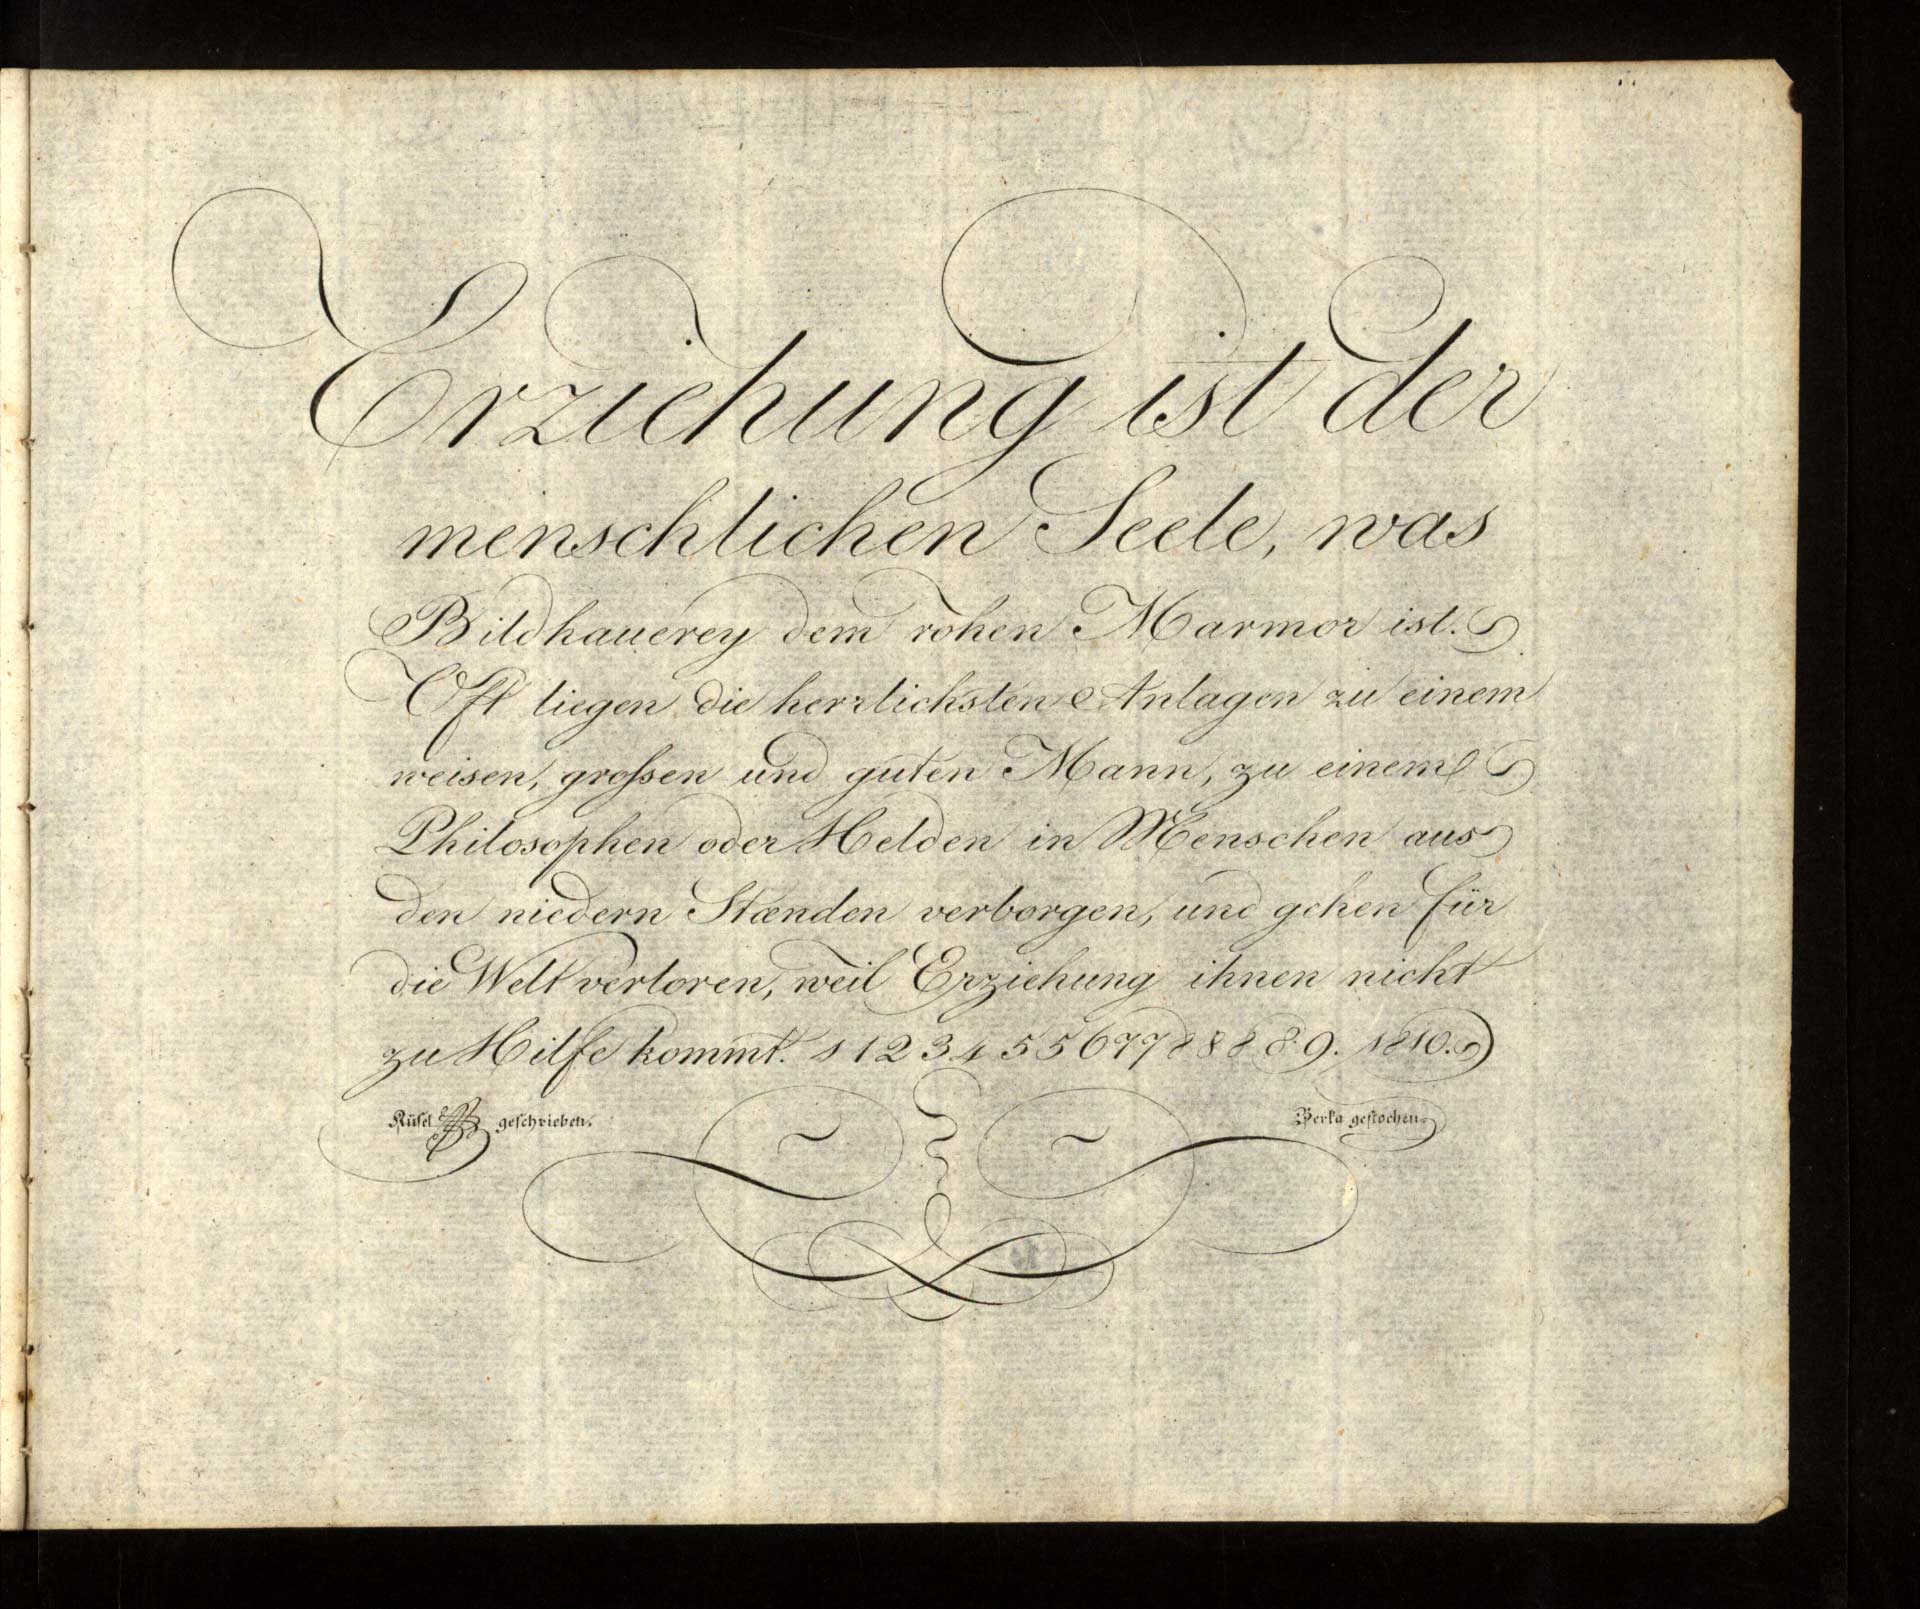 Erziehung ist der
menschlichen Seele, was
Bildhauerey dem rohen Marmor ist.
Oft liegen die herrlichsten Anlagen zu einem
weisen, großen und guten Mann, zu einem
Philosophen oder Helden in Menschen aus
den niedern Stænden verborgen, und gehen für
die Welt verloren, weil Erziehung ihnen nicht
zu Hilfe kommt. 1 1 2 3 4 5 5 6 7 7 8 8 8 8 9. 1810.
geschrieben. Berka gestochen.